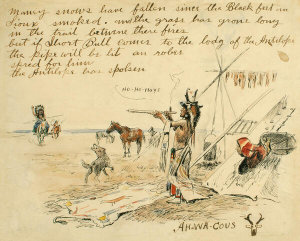 Maney snows have fallen since the Black feet an
Sioux smoked. and the grass has grone long
in the trail betwine there fires
but if Short Bull comes to the lodg of the Antilope
the pipe will be lit an robes
spred for him
the Antilope has spoken
HO-HO-HOYS
AH-WA-COUS